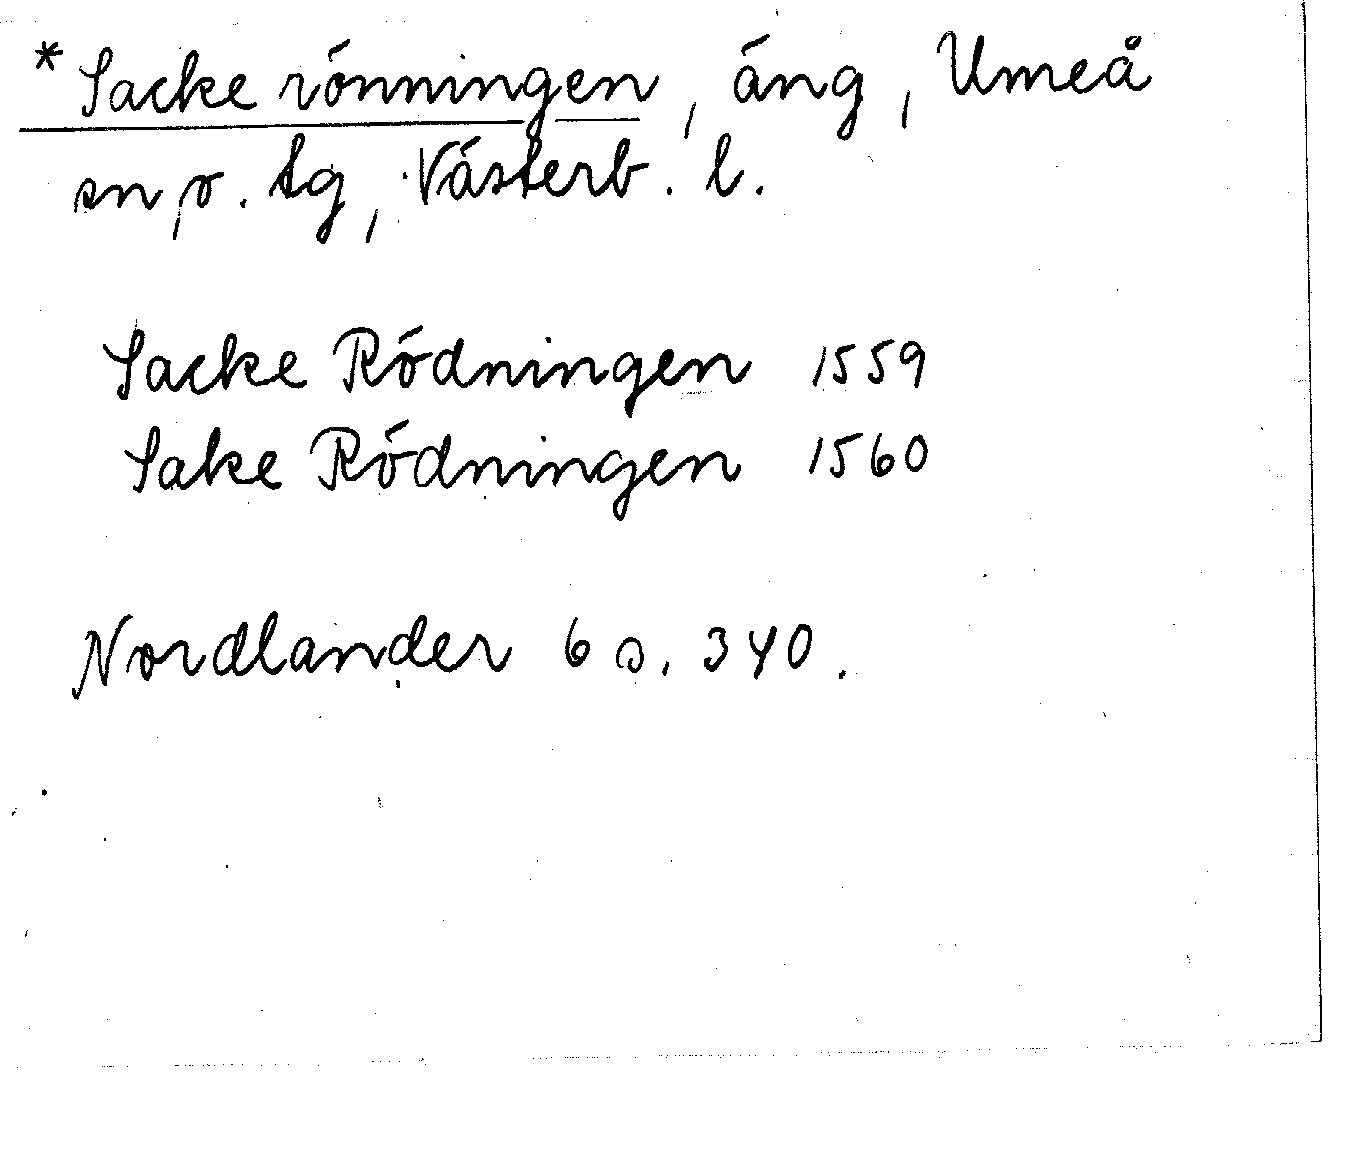 *Sacke rönningen, äng, Umeå
sn o. tg, Västerb. l.
Sacke Rödningen 1559
Sake Rödningen 1560
Nordlander 6 s. 340.